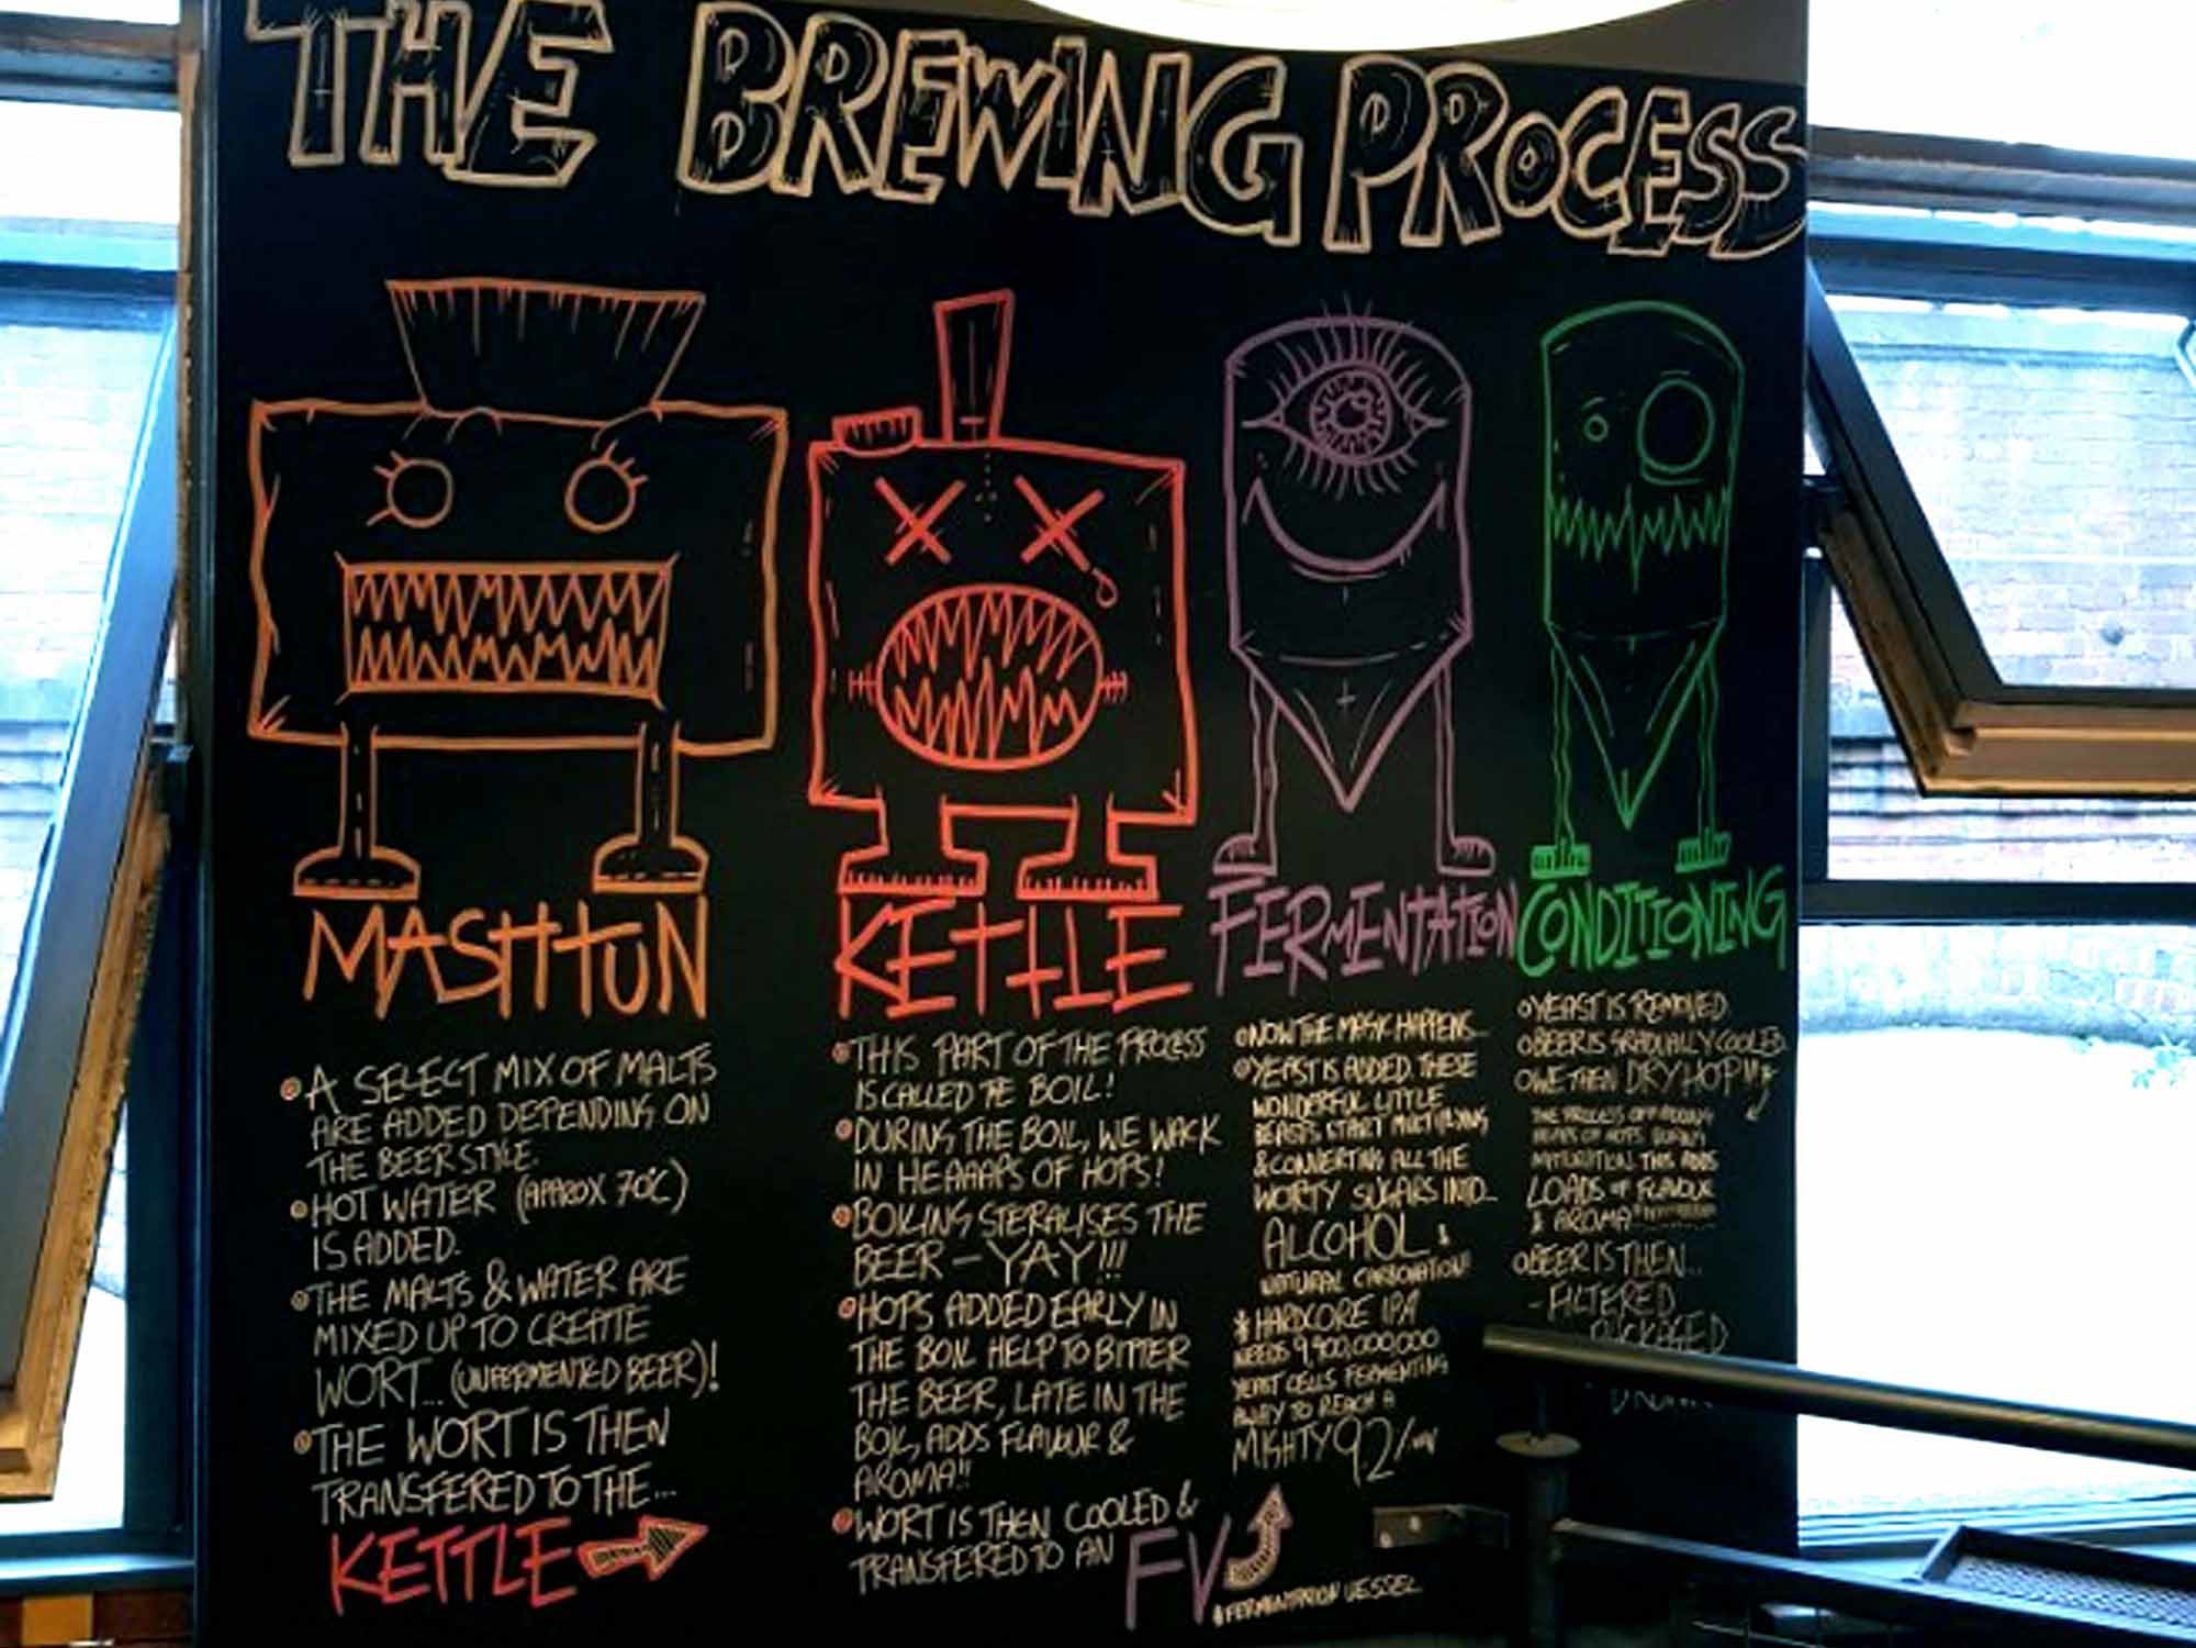 THE BREWING PROCESS
MASHTUN
• A SELECT MIX OF MALTS
ARE ADDED DEPENDING ON
THE BEER STYLE.
• HOT WATER (APPROX 70°C)
IS ADDED.
• THE MALTS & WATER ARE
MIXED UP TO CREATE
WORT... (UNFERMENTED BEER)!
• THE WORT IS THEN
TRANSFERED TO THE...
KETTLE
KETTLE
• THIS PART OF THE PROCESS
IS CALLED THE BOIL!
• DURING THE BOIL, WE WACK
IN HEAAAPS OF HOPS!
• BOILING STERALISES THE
BEER - YAY!!!
• HOPS ADDED EARLY IN
THE BOIL HELP TO BITTER
THE BEER, LATE IN THE
BOIL, ADDS FLAVOUR &
AROMA!!
• WORT IS THEN COOLED &
TRANSFERED TO AN FV
FERMENTATION VESSEL
FERMENTATION
• NOW THE MAGIC HAPPENS...
• YEAST IS ADDED. THESE
WONDERFUL LITTLE
BEASTS START MULTIPLYING
& CONVERTING ALL THE
WORTY SUGARS INTO...
ALCOHOL &
NATURAL CARBONATION!
* HARDCORE IPA
NEEDS 9,400,000,000
YEAST CELLS FERMENTING
AWAY TO REACH A
MIGHTY 9.2
CONDITIONING
• YEAST IS REMOVED
• BEER IS GRADUALLY COOLED
• WE THEN DRY HOP
THE PROCESS OF ADDING
HEAPS OF HOPS DURING
MATURATION. THIS ADDS
LOADS OF FLAVOUR
& AROMA
• BEER IS THEN...
- FILTERED
PACKAGED